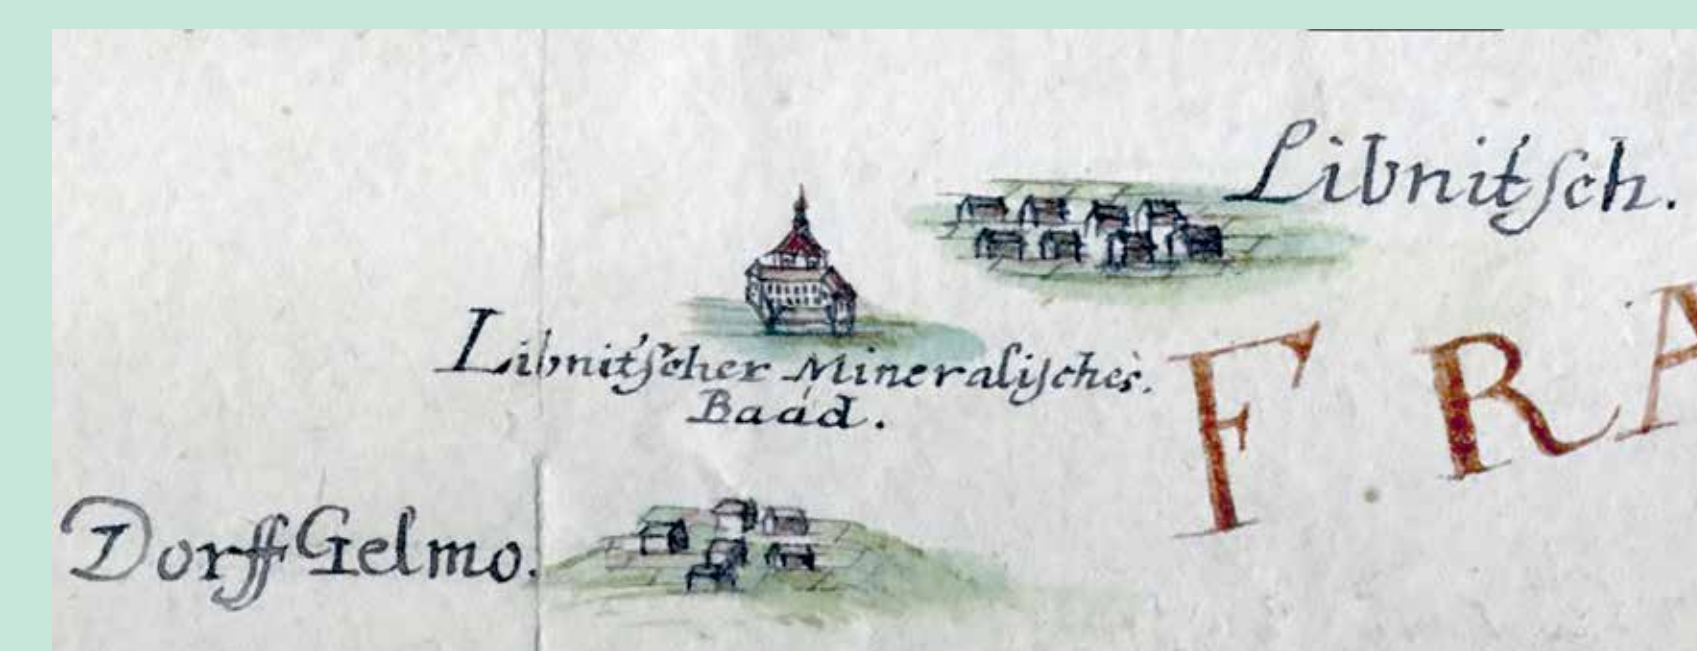 Libnitſch.
Libnitſcher Mineraliſches.
Baad.
F R A
Dorff Gelmo.